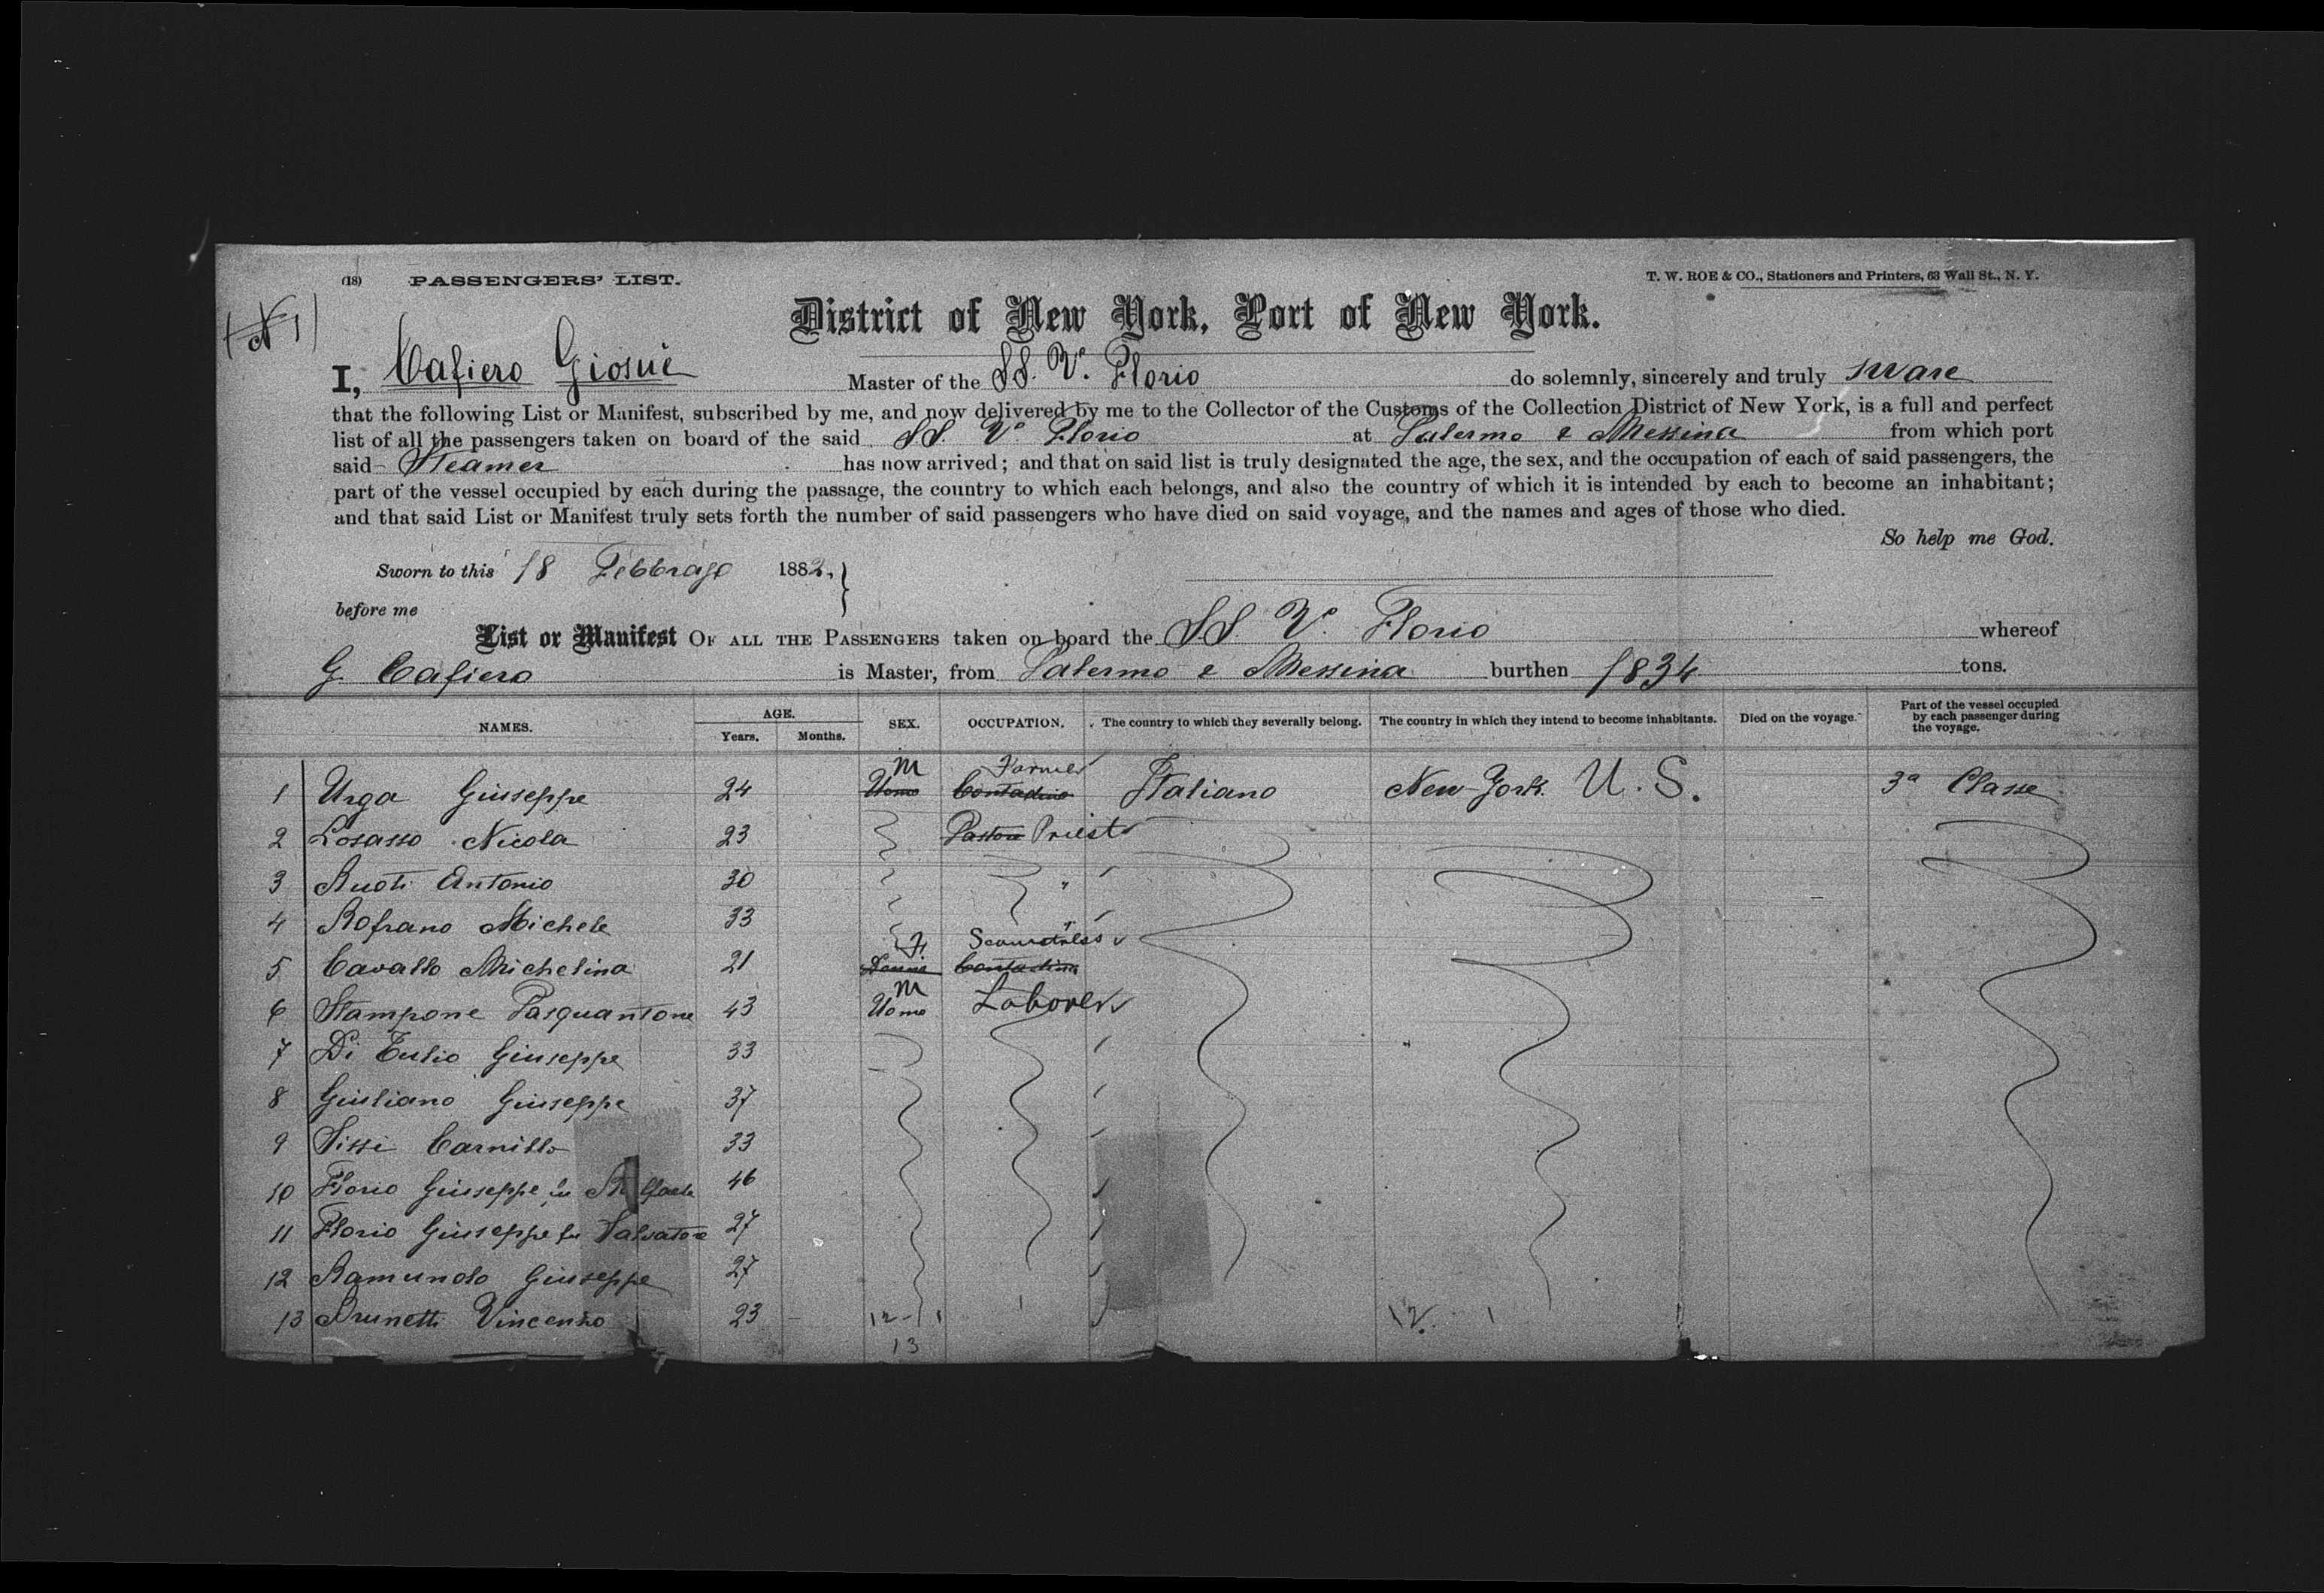 (18) PASSENGERS' LIST.
T. W. ROE & CO., Stationers and Printers, 63 Wall St., N. Y.
District of New York, Port of New York.
I, Cafiero Giosuè Master of the SS. Vo. Florio do solemnly, sincerely and truly sware
that the following List or Manifest, subscribed by me, and now delivered by me to the Collector of the Customs of the Collection District of New York, is a full and perfect
list of all the passengers taken on board of the said SS. Vo Florio at Palermo e Messina from which port
said Steamer has now arrived; and that on said list is truly designated the age, the sex, and the occupation of each of said passengers, the
part of the vessel occupied by each during the passage, the country to which each belongs, and also the country of which it is intended by each to become an inhabitant;
and that said List or Manifest truly sets forth the number of said passengers who have died on said voyage, and the names and ages of those who died.
So help me God.
Sworn to this 18 Febbrajo 1882,
before me
List or Manifest OF ALL THE PASSENGERS taken on board the SS. Vo. Florio whereof
G. Cafiero is Master, from Palermo e Messina burthen 1834 tons.
NAMES. AGE. Years. Months. SEX. OCCUPATION. The country to which they severally belong. The country in which they intend to become inhabitants. Died on the voyage. Part of the vessel occupied by each passenger during the voyage.
1 Urga Giuseppe 24 Uomo M Contadino Farmer Italiano New York. U. S. 3a Classe
2 Losasso Nicola 23 Pastore Priest
3 Ruoti Antonio 30 "
4 Rofrano Michele 33 "
5 Cavallo Michelina 21 Donna F. Contadina Seamstress
6 Stampone Pasquantone 43 Uomo M Laborer
7 Di Tulio Giuseppe 33
8 Giuliano Giuseppe 37
9 Sissi Carmillo 33
10 Florio Giuseppe fu 46
11 Florio Giuseppe fu Salvatore 27
12 Ramundo Giuseppe 27
13 Brunetti Vincenzo 23 12-1 1 12. 1
13